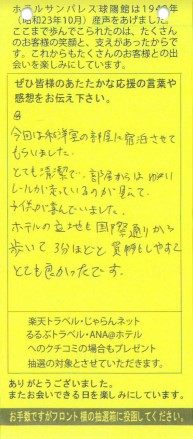 ホテルサンパレス球陽館は194
（昭和23年10月）産声をあげました。
ここまで歩んでこられたのは、たくさん
のお客様の笑顔と、支えがあったからで
す。これからもたくさんのお客様との出
会いを楽しみにしています。
ぜひ皆様のあたたかな応援の言葉や
感想をお伝え下さい。
今回は和洋室の部屋に宿泊させて
もらいました。
とても清潔で、部屋からはゆい
レールが走っているのが見えて
子供が喜んでいました。
ホテルの立地も国際通りから
歩いて3分ほどと買物もしやすく
とても良かったです。
楽天トラベル・じゃらんネット
るるぶトラベル・ANA@ホテル
へのクチコミの場合もプレゼント
抽選の対象とさせていただきます。
ありがとうございました。
またお会いできる日を楽しみにしています。
お手数ですがフロント横の抽選箱に投函してください。